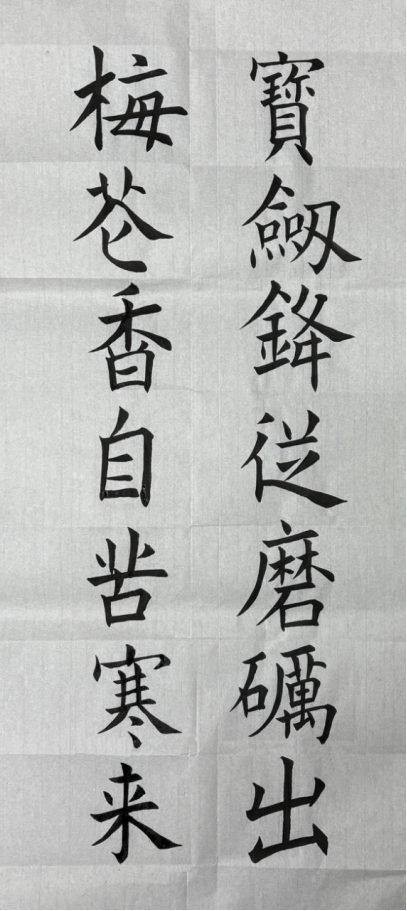 寶劔鋒従磨礪出
梅花香自苦寒来